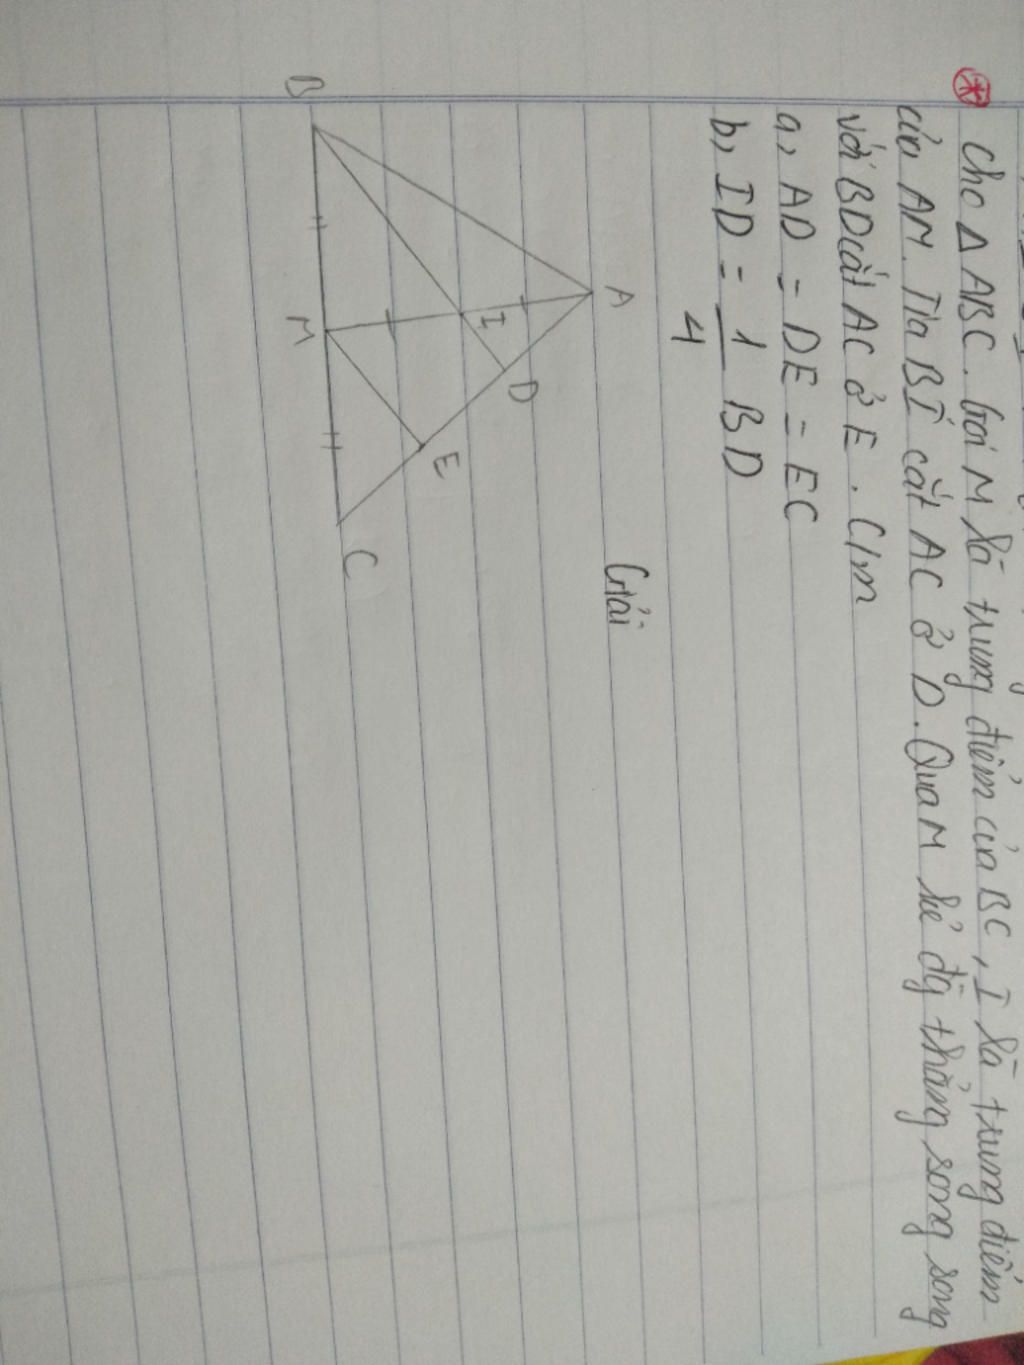 Cho Δ ABC. Gọi M là trung điểm của BC, I là trung điểm
của AM. Tia BI cắt AC ở D. Qua M kẻ đg thẳng song song
với BD cắt AC ở E. C/m
a, AD = DE = EC
b, ID = 1/4 BD
Giải
A
B
I
D
M
E
C